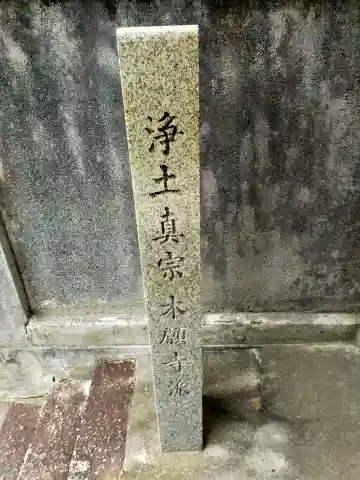 浄土真宗本願寺派